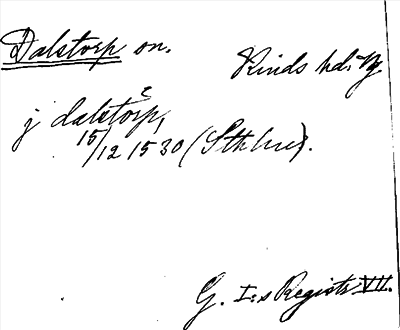 Dalstorp sn.
Kinds hd. Vg
j dalstorp,
15/12 1530 (Sthlm).
G. I:s Registr VII.